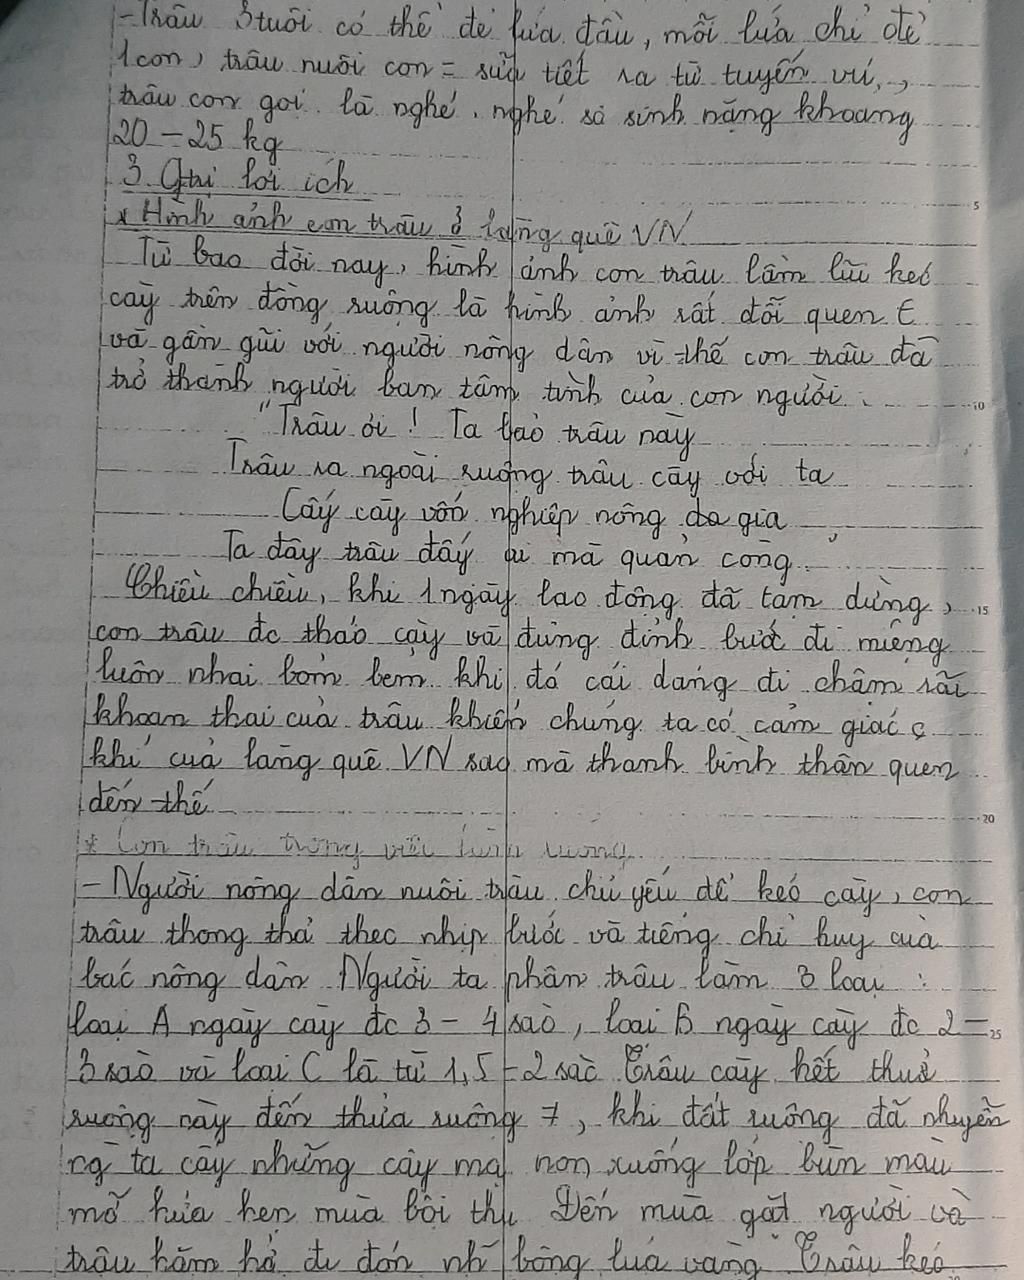 -Trâu 3 tuổi có thể đẻ lứa đầu, mỗi lứa chỉ đẻ
1 con, trâu nuôi con = sữa tiết ra từ tuyến vú,
trâu con gọi là nghé. nghé sơ sinh nặng khoảng
20 - 25 kg
3. Giá lợi ích
* Hình ảnh con trâu ở làng quê VN
Từ bao đời nay, hình ảnh con trâu lầm lũi kéo
cày trên đồng ruộng là hình ảnh rất đỗi quen
và gần gũi với người nông dân vì thế con trâu đã
trở thành người bạn tâm tình của con người.
"Trâu ơi! Ta bảo trâu này
Trâu ra ngoài ruộng trâu cày với ta
Cấy cày vốn nghiệp nông gia
Ta đây trâu đấy ai mà quản công"
Chiều chiều, khi 1 ngày lao động đã tạm dừng,
con trâu đc tháo cày và đủng đỉnh bước đi miệng
luôn nhai bỏm bẻm khi đó cái dáng đi chậm rãi
khoan thai của trâu khiến chúng ta có cảm giác
khí của làng quê VN sao mà thanh bình thân quen
đến thế
* Con trâu trong việc làm ruộng
- Người nông dân nuôi trâu chủ yếu để kéo cày, con
trâu thong thả theo nhịp bước và tiếng chỉ huy của
bác nông dân Người ta phân trâu làm 3 loại :
loại A ngày cày đc 3 - 4 sào, loại B ngày cày đc 2 -
3 sào và loại C là từ 1,5 - 2 sào Trâu cày hết thửa
ruộng này đến thửa ruộng ≠, khi đất ruộng đã nhuyễn
ng ta cấy những cây mạ non xuống lớp bùn màu
mỡ hứa hẹn mùa bội thu Đến mùa gặt người và
trâu hăm hở đi đón bông lúa vàng Trâu kéo